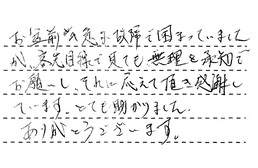 お盆前の急な故障で困っていました
が、客先目線で見ても無理を承知で
お願いし、それに応えて頂き感謝し
ています。とても助かりました。
ありがとうございます。